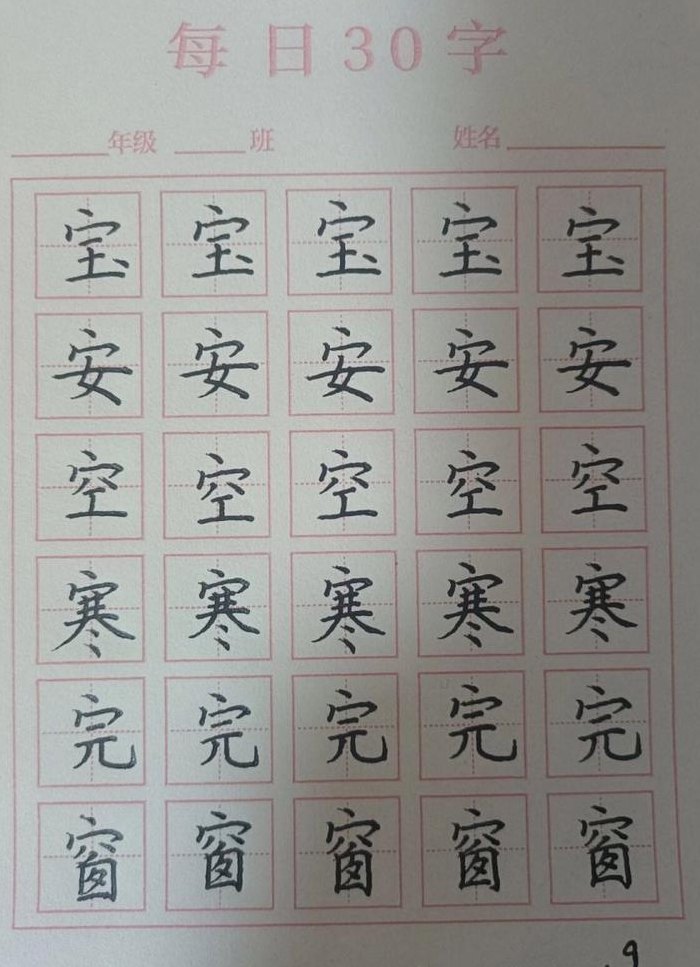 每日30字
年级 班 姓名
宝 宝 宝 宝 宝
安 安 安 安 安
空 空 空 空 空
寒 寒 寒 寒 寒
完 完 完 完 完
窗 窗 窗 窗 窗
.9